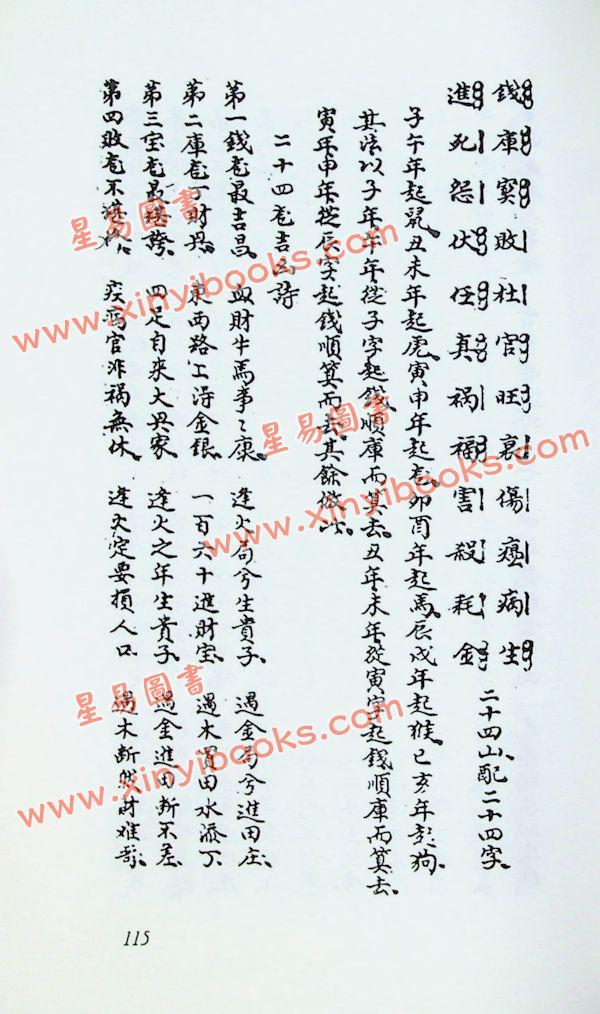 錢庫寶敗社官旺衰傷瘟病生
進死怨伏任真禍福害殺耗金
二十四山、配二十四字。
子午年起鼠、丑未年起虎、寅申年起龙、卯酉年起馬、辰戌年起猴、巳亥年起狗。
其法以子年午年從子字起錢順庫而算去、丑年未年從寅字起錢順庫而算去。
寅年申年從辰字起錢順算而去、其餘倣此。
二十四龙吉凶詩
第一錢龙最吉昌、血財牛馬事〻康、逢火局兮生貴子、遇金局兮進田庄。
第二庫龙丁財兴、東西路上得金銀、一百六十進財宝、遇木買田水添丁、
第三宝龙最堪誇、四足自來大兴家、逢火之年生貴子、遇金進田断不差、
第四敗龙不 疾病官非禍無休、逢火定要損人口、遇木断然財难
115
星易圖書
www.xinyibooks.com
星易圖書
www.xinyibooks.com
星易圖書
www.xinyibooks.com